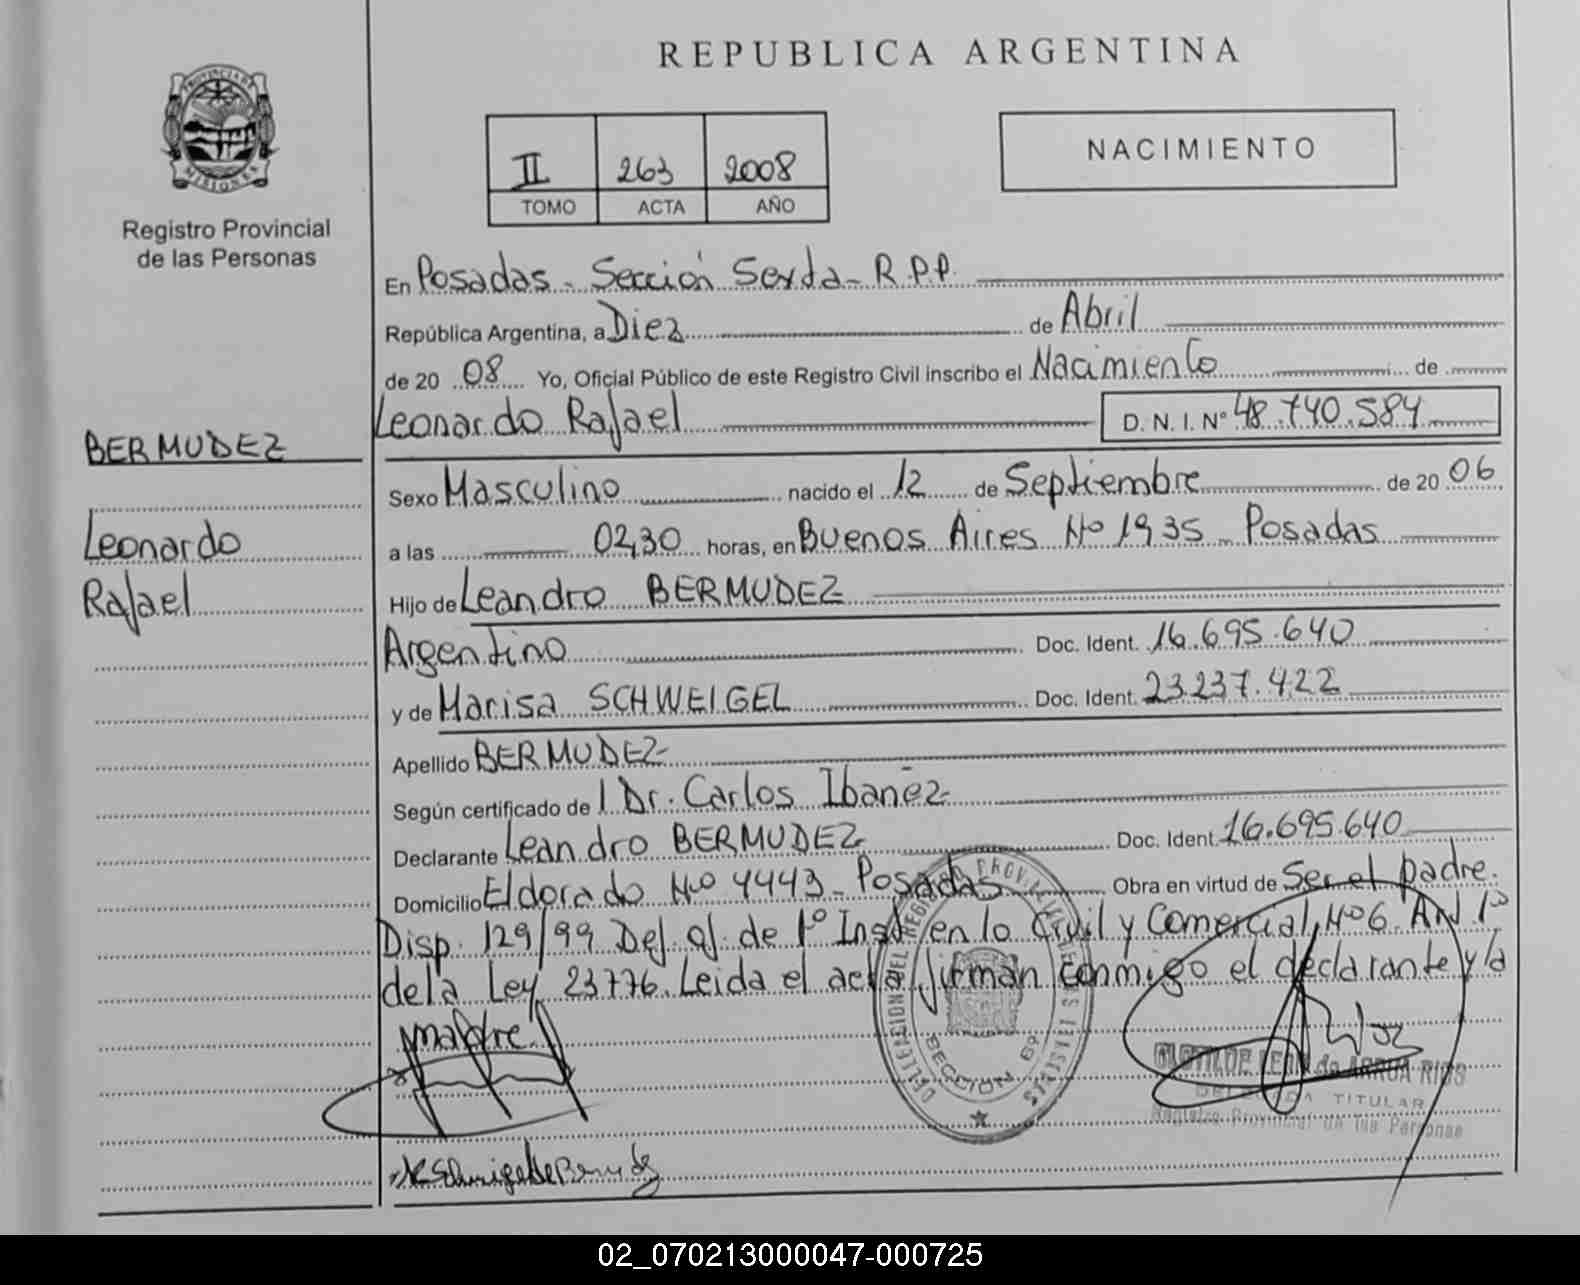 REPUBLICA ARGENTINA
PROVINCIA DE
MISIONES
Registro Provincial
de las Personas
II 263 2008
TOMO ACTA AÑO
NACIMIENTO
En Posadas - Sección Sexta - R.P.P.
República Argentina, a Diez de Abril
de 20 08 Yo, Oficial Público de este Registro Civil inscribo el Nacimiento de
Leonardo Rafael D. N. I. Nº 48.740.584
BERMUDEZ
Leonardo
Rafael
Sexo Masculino nacido el 12 de Septiembre de 20 06
a las 02,30 horas, en Buenos Aires Nº 1935 - Posadas
Hijo de Leandro BERMUDEZ
Argentino Doc. Ident. 16.695.640
y de Marisa SCHWEIGEL Doc. Ident. 23.237.422
Apellido BERMUDEZ
Según certificado de Dr. Carlos Ibañez
Declarante Leandro BERMUDEZ Doc. Ident. 16.695.640
Domicilio Eldorado Nº 4443 - Posadas Obra en virtud de Ser el padre.
Disp. 129/99 Def. of. de 1º Inst en lo Civil y Comercial Nº 6. Art 1º
de la Ley 23776. Leida el acta, firman conmigo el declarante y la
madre.
DELEGACION DEL REGISTRO PROV. DE LAS PERSONAS
SECCION 6º
de ARRUA RIOS
DELEGADA TITULAR
Registro Provincial de las Personas
02_070213000047-000725